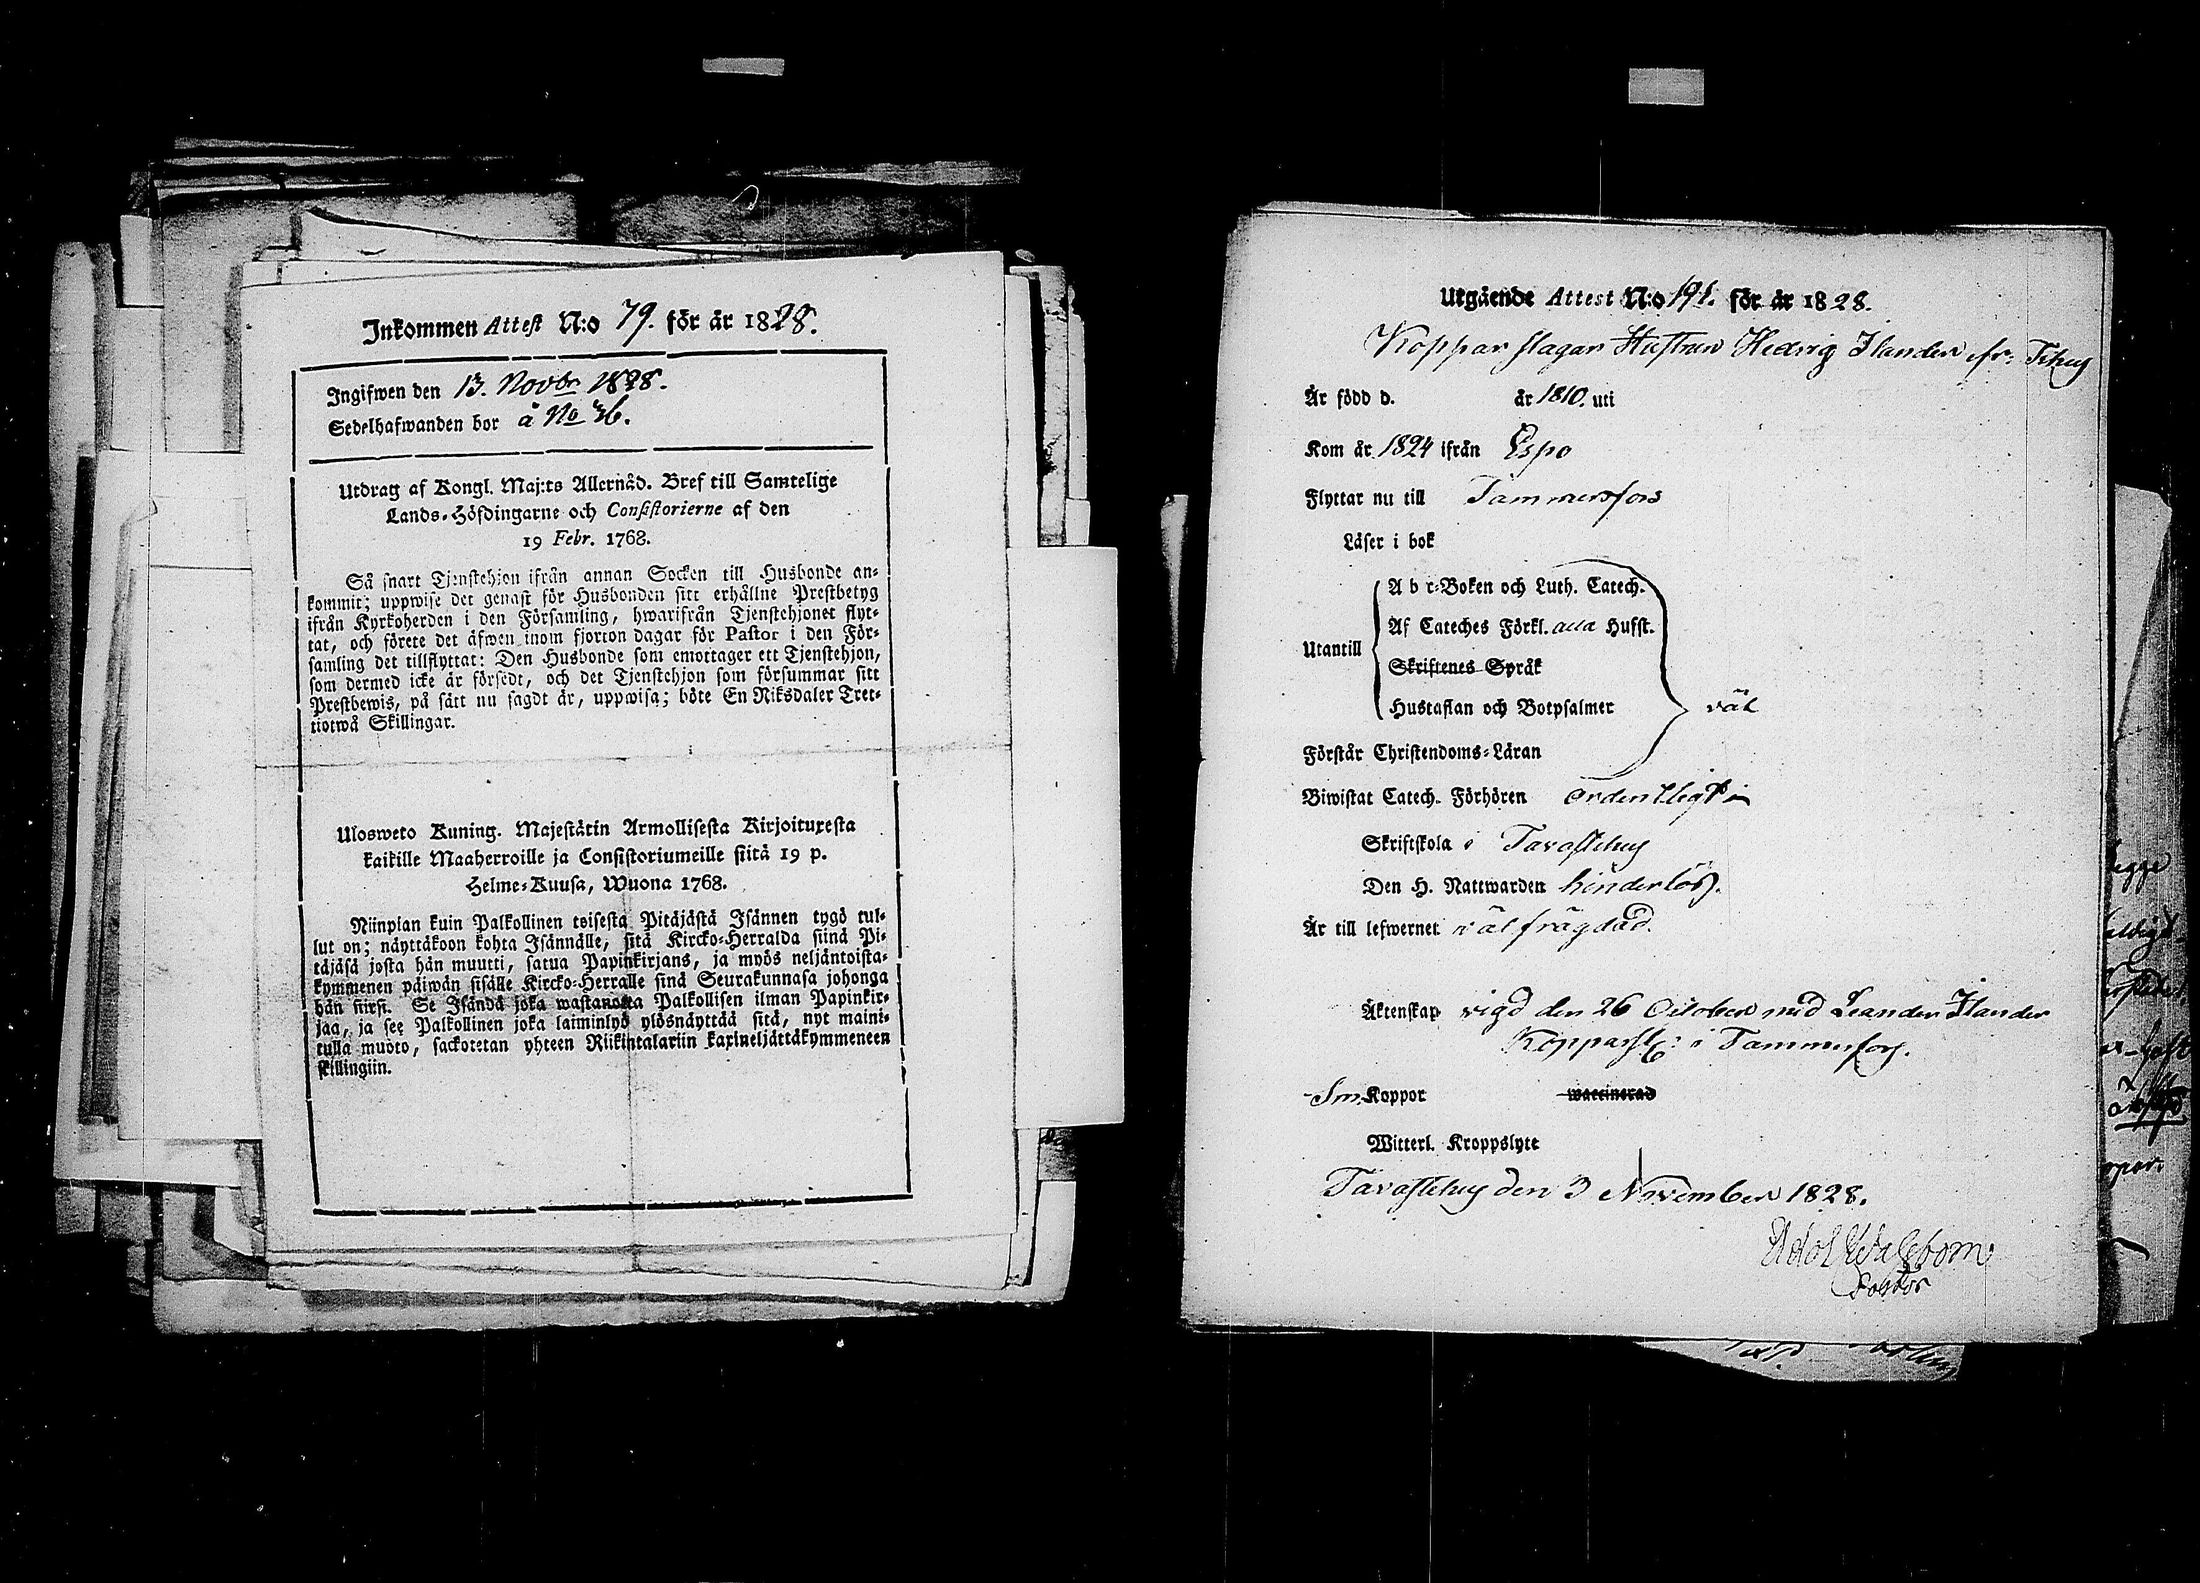 Inkommen Attest N:o 79. för år 1828.
Ingifwen den 13. Novbr 1828.
Sedelhafwanden bor å No 36.
Utdrag af Kongl. Maj:ts Allernåd. Bref till Samtelige
Lands-Höfdingarne och Consistorierne af den
19 Febr. 1768.
Så snart Tjenstehjon ifrån annan Socken till Husbonde an-
kommit; uppwise det genast för Husbonden sitt erhållne Prestbetyg
ifrån Kyrkoherden i den Församling, hwarifrån Tjenstehjonet flyt-
tat, och förete det äfwen inom fjorton dagar för Pastor i den För-
samling det tillflyttat: Den Husbonde som emottager ett Tjenstehjon,
som dermed icke är försedt, och det Tjenstehjon som försummar sitt
Prestbewis, på sätt nu sagdt är, uppwisa; böte En Riksdaler Tret-
tiotwå Skillingar.
Ulosweto Kuning. Majestätin Armollisesta Kirjoituxesta
kaikille Maaherroille ja Consistoriumeille siitä 19 p.
Helme-Kuusa, Wuona 1768.
Niinpian kuin Palkollinen toisesta Pitäjästä Isännen tygö tul-
lut on; näyttäkoon kohta Isännälle, sitä Kircko-Herralda siinä Pi-
täjäsä josta hän muutti, satua Papinkirjans, ja myös neljäntoista-
kymmenen päiwän sisälle Kircko-Herralle sinä Seurakunnasa johonga
hän siirsi. Se Isändä joka wastanotta Palkollisen ilman Papinkir-
jaa, ja see Palkollinen joka laiminlyö ylösnäyttää sitä, nyt maini-
tulla muoto, sackotetan yhteen Riikintalariin kaxineljättäkymmeneen
skillingiin.
Utgående Attest N:o 191. för år 1828.
Koppar slagar Hustrun Hedvig Ilander ifr: Tshus
Är född d. år 1810. uti
Kom år 1824 ifrån Espo
Flyttar nu till Tammersfors
Läser i bok
Abc-Boken och Luth. Catech.
Af Cateches Förkl. alla Hufst.
Utantill
Skriftenes Språk
Hustaflan och Botpsalmer väl
Förstår Christendoms-Läran
Biwistat Catech. Förhören ordentligt i
Skriftskola i Tavastehus
Den H. Nattwarden hinderlös.
Är till lefwernet väl frägdad.
Äktenskap vigd den 26 October med Leander Ilander
Kopparsl: i Tammerfors.
Sm Koppor waccinerad
Witterl. Kroppslyte
Tavastehus den 3 November 1828.
Pastor